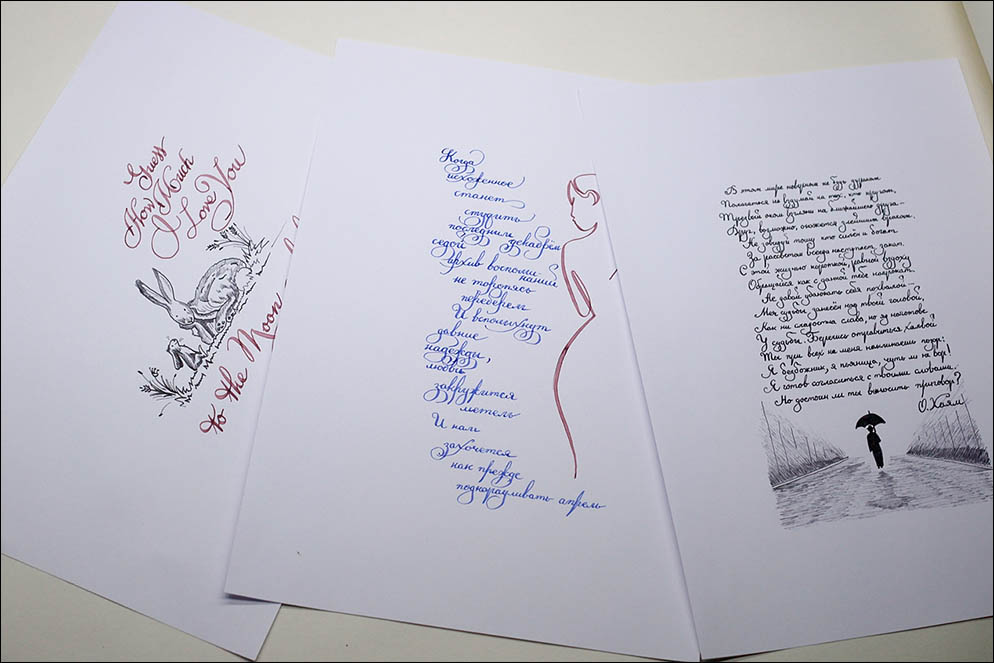 Guess
How Much
I Love You
to the Moon
Когда
исхоженное
станет
студить
последним декабрём
седой
архив воспоми-
наний
не торопясь
переберем
И вспыхнут
давние
надежды,
любви
закружится
метель
И нам
захочется
как прежде
подкарауливать апрель
В этом мире неверном не будь дураком:
Полагаться не вздумай на тех, кто кругом,
Трезвым оком взгляни на ближайшего друга –
Друг, возможно, окажется злейшим врагом.
Не завидуй тому кто силен и богат
За рассветом всегда наступает закат.
С этой жизнью короткой, равной вздоху
Обращайся как с данной тебе напрокат.
Не давай убаюкать себя похвалой –
Меч судьбы занесён над твоей головой,
Как ни сладостна слава, но яд наготове
У судьбы. Берегись отравиться халвой!
Ты при всех на меня накликаешь позор:
Я безбожник, я пьяница, чуть ли не вор!
Я готов согласиться с твоими словами.
Но достоин ли ты выносить приговор?
О.Хаям